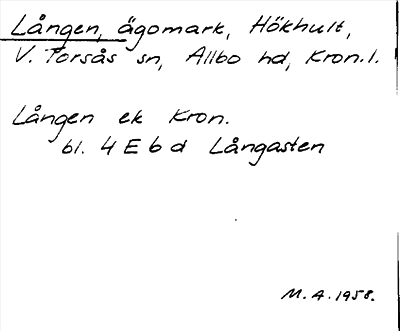 Lången, ägomark, Hökhult,
V. Torsås sn, Allbo hd, Kron. l.
Lången ek Kron.
bl. 4 E b d Långasten
M. A. 1958.